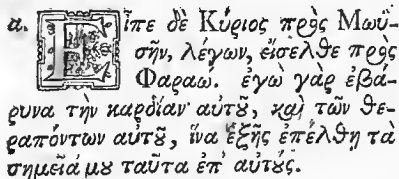 α. Εἶπε δὲ Κύριος πρὸς Μωϋ-
σῆν, λέγων, εἴσελθε πρὸς
Φαραώ. ἐγὼ γὰρ ἐβά-
ρυνα τὴν καρδίαν αὐτȣ͂, καὶ τῶν θε-
ραπόντων αὐτȣ͂, ἵνα ἑξῆς ἐπέλθῃ τὰ
σημεῖά μȣ ταῦτα ἐπ' αὐτȣ́ς.